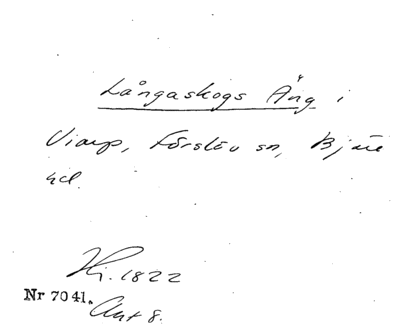 Långaskogs Äng i
Viarp, Förslöv sn, Bjäre
hd.
Hi. 1822
Nr 7041.
Akt 8.